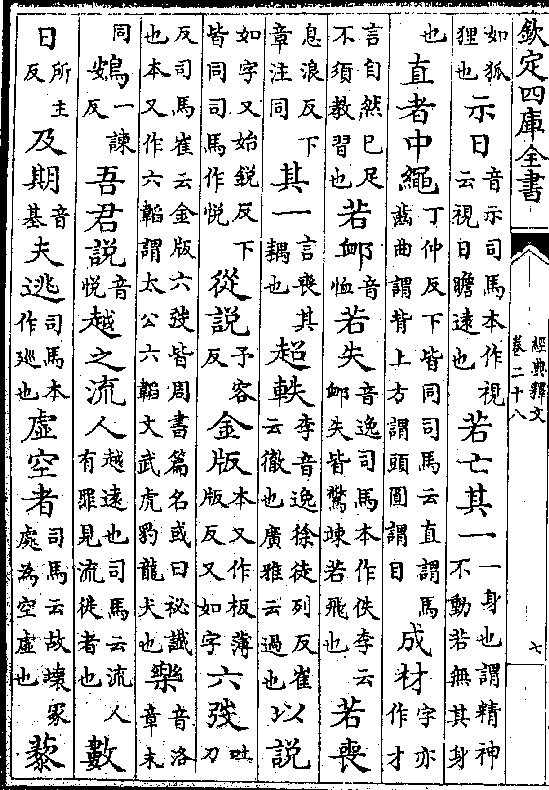 欽定四庫全書
經典釋文
卷二十八
七
如狐狸也示日音示司馬本作視云視日瞻遠也若亡其一一身也謂精神不動若無其身
也直者中繩丁仲反下皆同司馬云直謂馬齒曲謂背上方謂頭圓謂目成材字亦作才
言自然已足不須教習也若䘏音恤若失音逸司馬本作佚李云䘏失皆驚竦若飛也若喪
息浪反下章注同其一言喪其耦也超軼李音逸徐徒列反崔云徹也廣雅云過也以說
如字又始銳反下皆同司馬作悅從說予容反金版本又作板薄版反又如字六弢吐刀
反司馬崔云金版六弢皆周書篇名或曰秘䜟也本又作六韜謂太公六韜文武虎豹龍犬也樂音洛章末
同鴳一諫反吾君說音悅越之流人越遠也司馬云流人有罪見流徙者也數
日所主反及期音基夫逃司馬本作巡也虛空者司馬云故壞冢處為空虛也藜